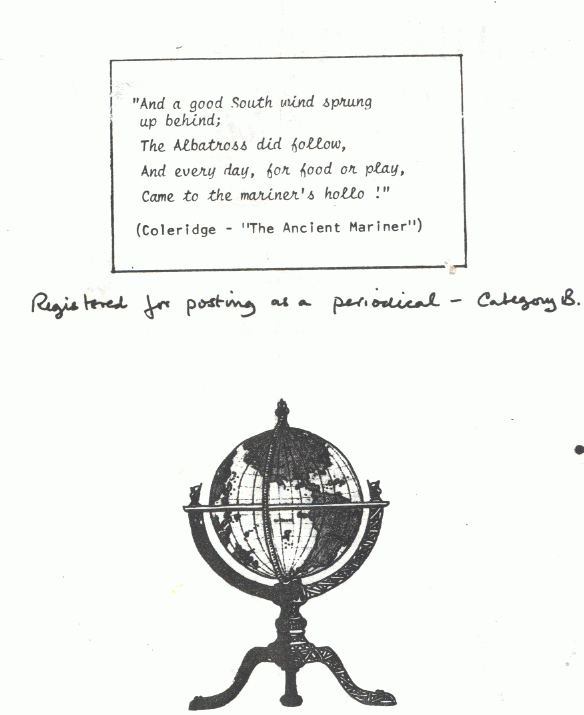 "And a good South wind sprung
up behind;
The Albatross did follow,
And every day, for food or play,
Came to the mariner's hollo !"
(Coleridge - "The Ancient Mariner")
Registered for posting as a periodical - Category B.